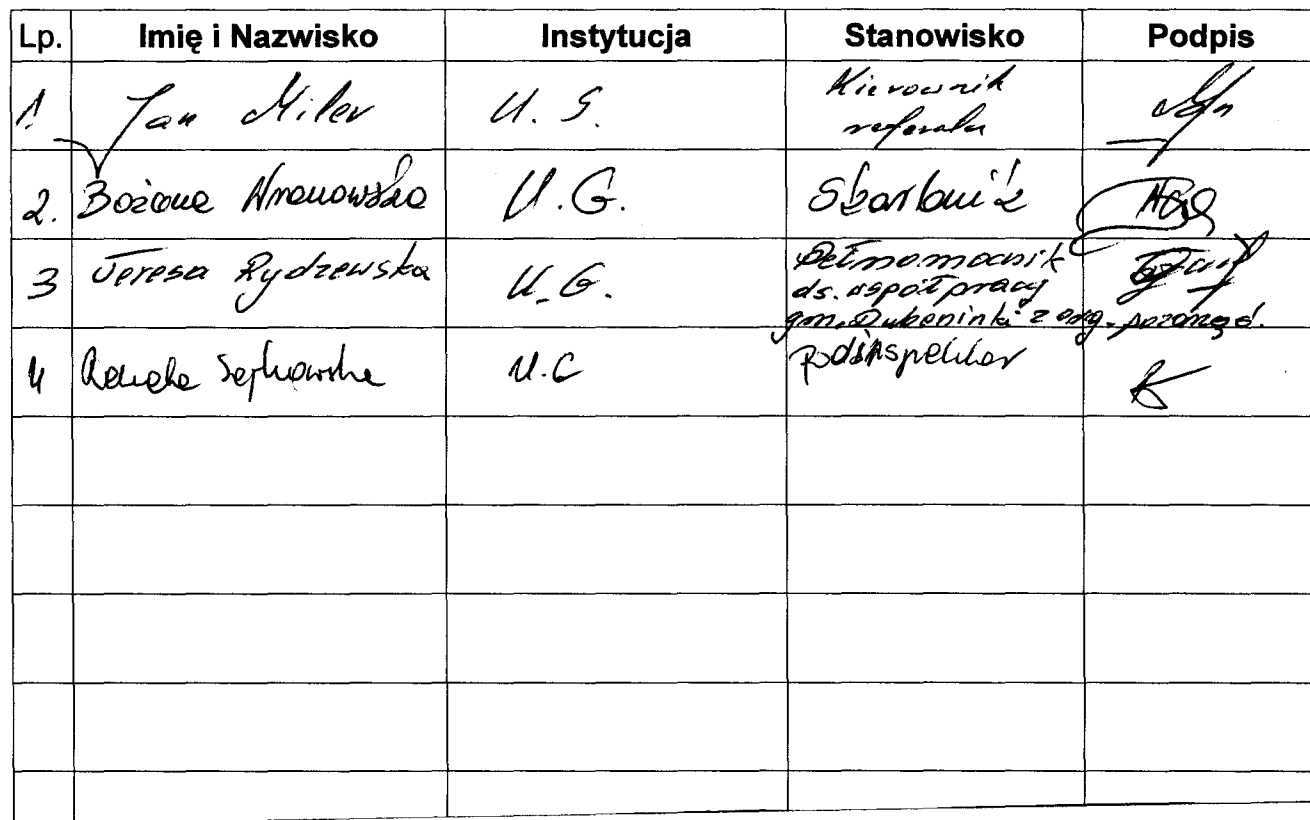 Lp. Imię i Nazwisko Instytucja Stanowisko Podpis
1. Jan Miler U. G. Kierownik
referatu
2. Bożena U.G. Skarbnik
3 Teresa Rydzewska U.G. Pełnomocnik
ds. współpracy
gm. Dubeninki z org. pozarząd.
4 U.G Podinspektor